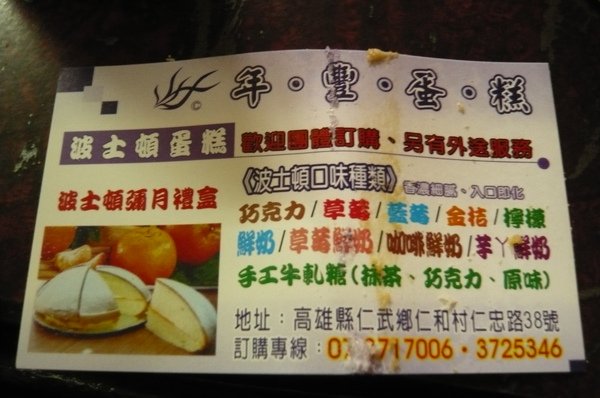 ©年・豐・蛋・糕
波士頓蛋糕 歡迎團體訂購、另有外送服務
波士頓彌月禮盒
《波士頓口味種類》香濃細膩、入口即化
巧克力/草莓/藍莓/金桔/檸檬
鮮奶/草莓鮮奶/咖啡鮮奶/芋丫鮮奶
手工牛軋糖(抹茶、巧克力、原味)
地址:高雄縣仁武鄉仁和村仁忠路38號
訂購專線:07-3717006・3725346